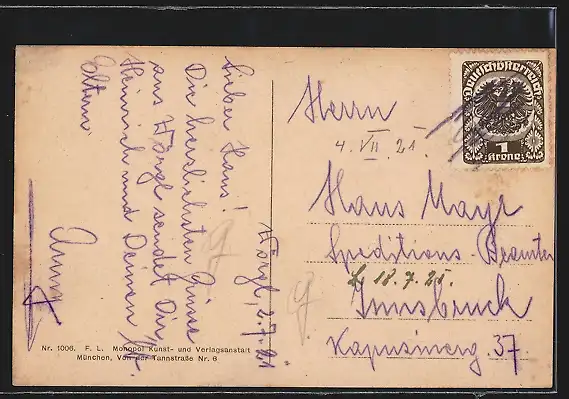 Lieber Hans!
Die herzlichsten Grüsse
aus Wörgl sendet Dir,
Heinrich und Deinen
Eltern.
Anna
Wörgl, 2.7.21
Deutschösterreich
1
Krone
Herrn
4. VII. 21.
Hans Mayr
Speditions-Beamter
18.7.21.
Innsbruck
Kapuzinerg. 37
Nr. 1006. F. L. Monopol Kunst- und Verlagsanstalt
München, Von der Tannstraße Nr. 6